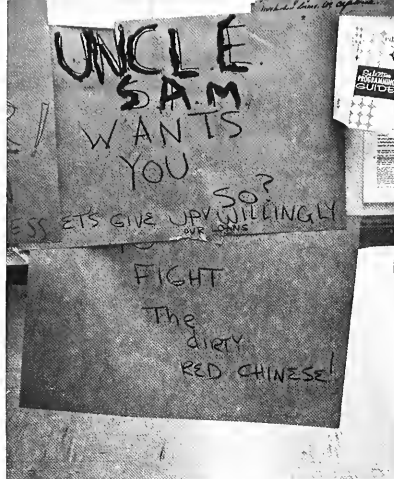 UNCLE
SAM
WANTS
YOU
SO?
ETS GIVE UP WILLINGLY
OUR LOANS
FIGHT
The
dIRTY
RED CHINESE!
ESS
PROGRAMMING
GUIDE